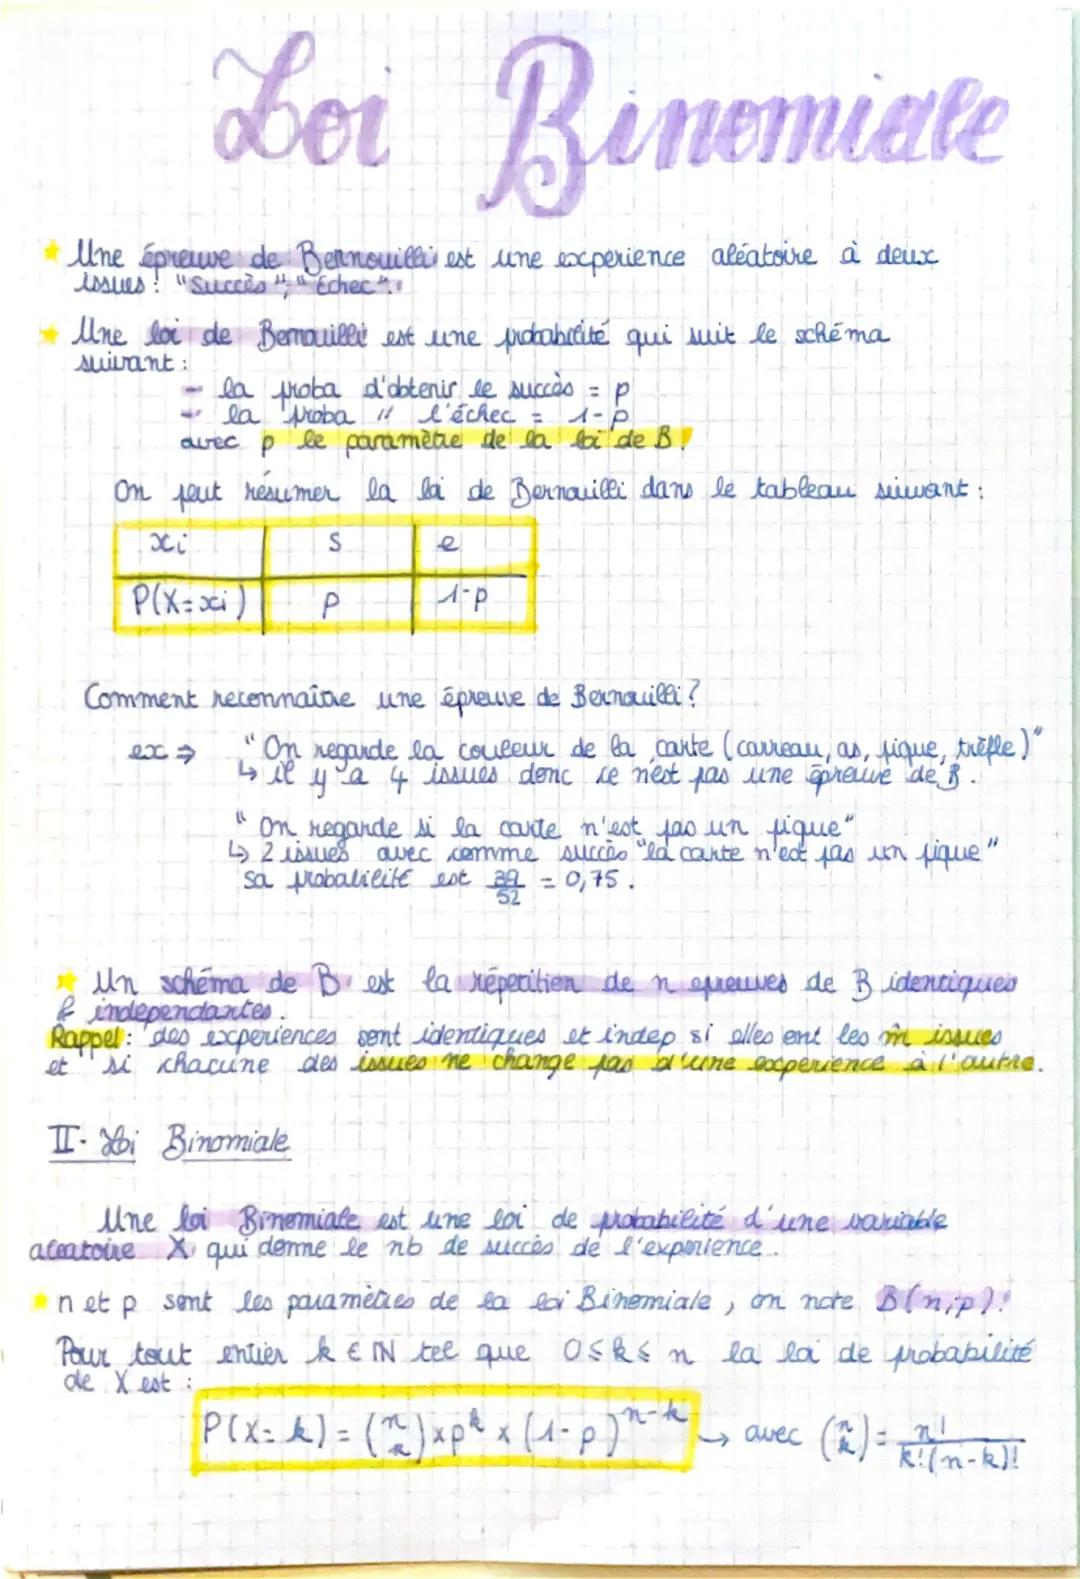 Loi Binomiale
Une épreuve de Bernouilli est une experience aléatoire à deux
issues : "Succès", "Echec".
Une loi de Bernouilli est une probabilité qui suit le schéma
suivant :
- la proba d'obtenir le succès = p
- la proba " l'échec = 1-p
avec p le paramètre de la loi de B.
On peut résumer la loi de Bernouilli dans le tableau suivant :
xi s e
P(X=xi) p 1-p
Comment reconnaître une épreuve de Bernouilli ?
ex ⇒ "On regarde la couleur de la carte (carreau, as, pique, trèfle)"
↳ il y a 4 issues donc ce n'est pas une épreuve de B.
"On regarde si la carte n'est pas un pique"
↳ 2 issues avec comme succès "la carte n'est pas un pique"
sa probabilité est 39/52 = 0,75.
Un schéma de B est la répétition de n epreuves de B identiques
& independantes.
Rappel : des experiences sont identiques et indep si elles ont les m̂ issues
et si chacune des issues ne change pas d'une experience à l'autre.
II- Loi Binomiale
Une loi Binomiale est une loi de probabilité d'une variable
aleatoire X qui donne le nb de succès de l'experience.
n et p sont les paramètres de la loi Binomiale, on note B(n;p).
Pour tout entier k ∈ ℕ tel que 0≤k≤n la loi de probabilité
de X est :
P(X=k) = (n k) × p^k × (1-p)^n-k → avec (n k) = n!/k!(n-k)!